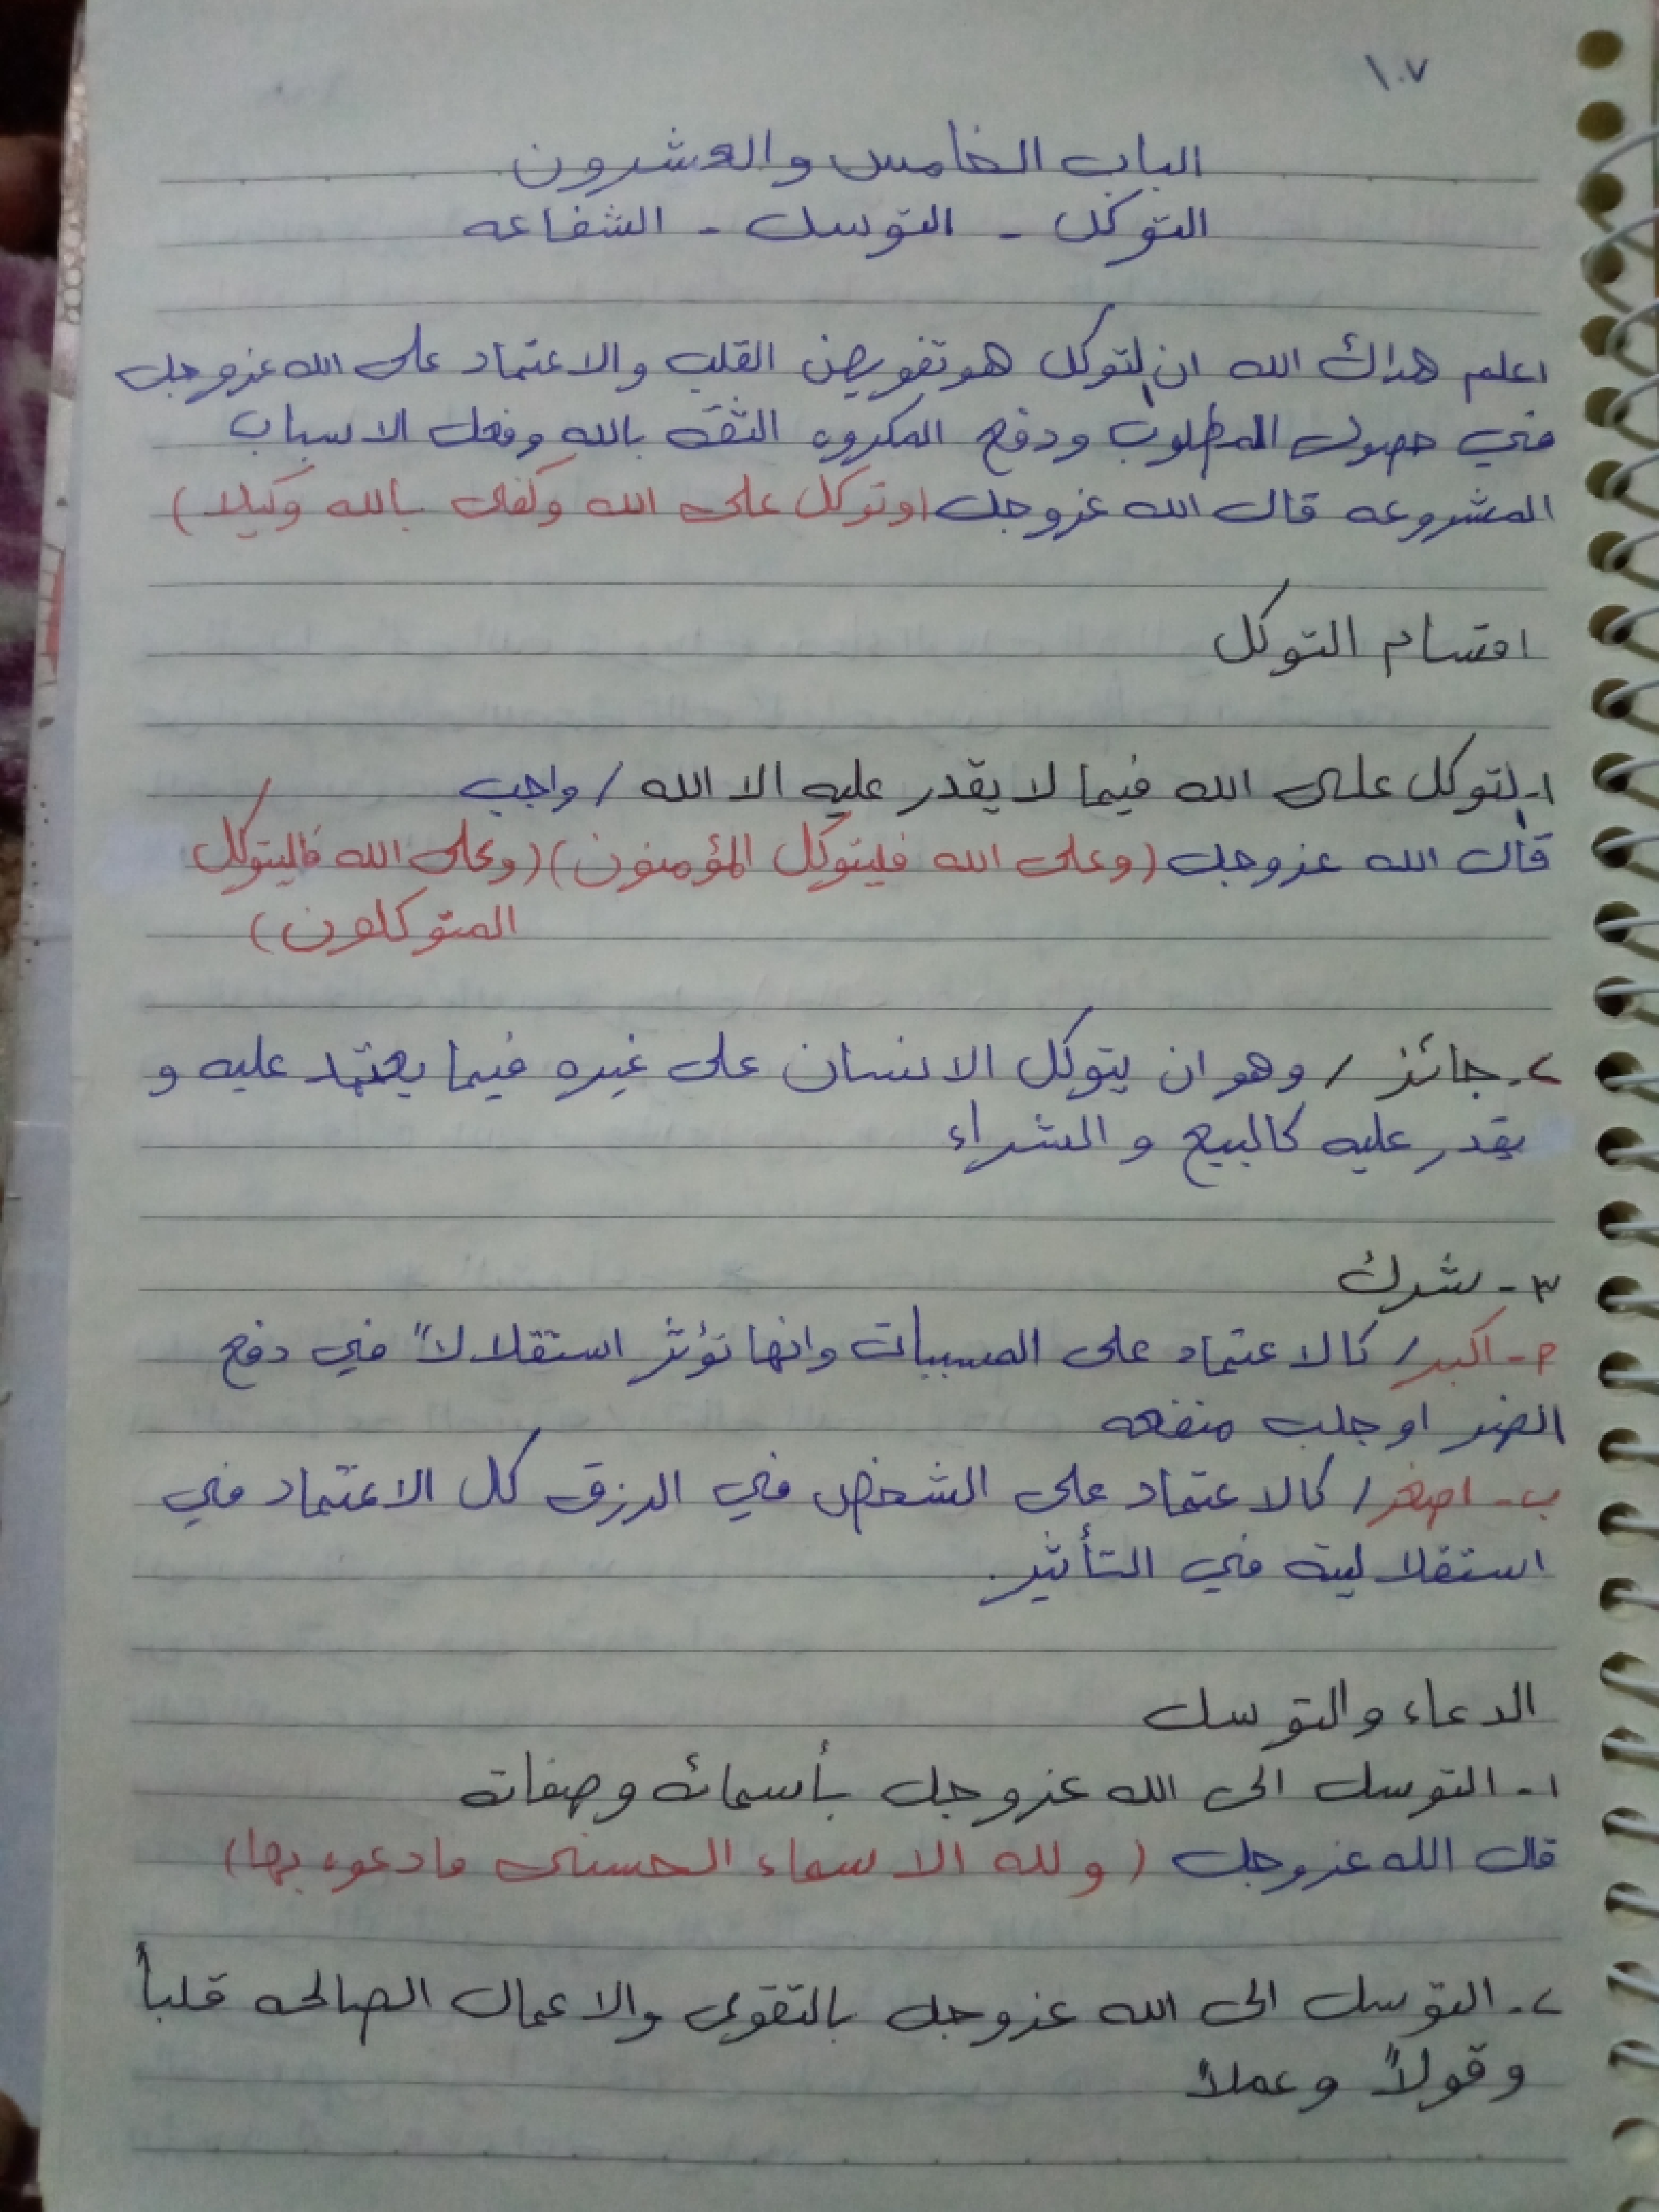 ١٠٧
الباب الخامس والعشرون
التوكل - التوسل - الشفاعه
اعلم هداك الله ان التوكل هو تفويض القلب والاعتماد على الله عزوجل
في حصول المطلوب ودفع المكروه الثقه بالله وفعل الاسباب
المشروعه قال الله عزوجل (وتوكل على الله وكفى بالله وكيلا)
اقسام التوكل
١- التوكل على الله فيما لا يقدر عليه الا الله / واجب
قال الله عزوجل (وعلى الله فليتوكل المؤمنون) (وعلى الله فاليتوكل
المتوكلون)
٢- جائز / وهو ان يتوكل الانسان على غيره فيما يعتمد عليه و
يقدر عليه كالبيع والشراء
٣- شرك
م- اكبر / كالاعتماد على المسببات وانها تؤثر استقلالاً في دفع
الضر او جلب منفعه
ب- اصغر / كالاعتماد على الشخص في الرزق كل الاعتماد في
استقلاليته في التأثير.
الدعاء والتوسل
١- التوسل الى الله عزوجل بأسمائه وصفاته
قال الله عزوجل (ولله الاسماء الحسنى فادعوه بها)
٢- التوسل الى الله عزوجل بالتقوى والاعمال الصالحه قلباً
وقولاً وعملاً